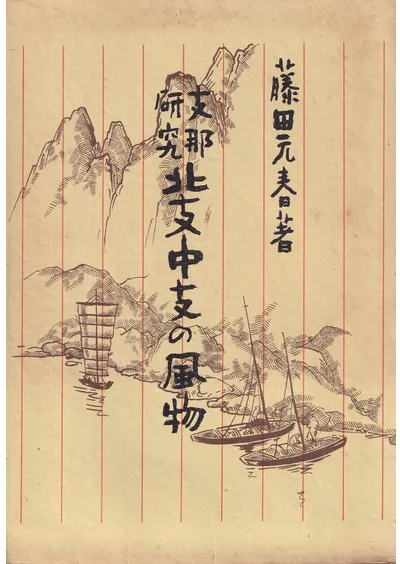 藤田元春著
支那
研究
北支中支の風物